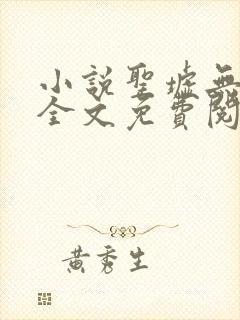 小說聖墟無
全文免費閱
黃秀生